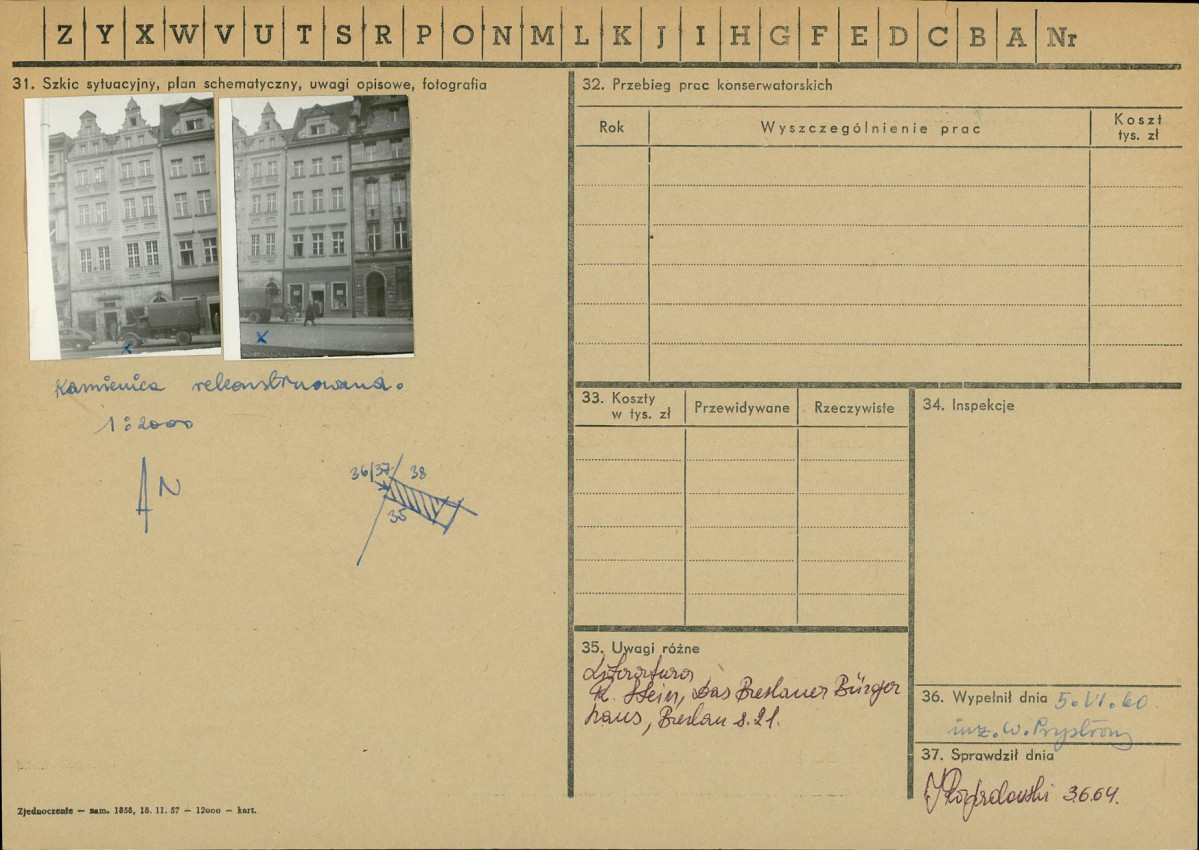 Z Y X W V U T S R P O N M L K J I H G F E D C B A Nr
31. Szkic sytuacyjny, plan schematyczny, uwagi opisowe, fotografia
x
x
Kamienica rekonstruowana.
1:2000
N
36/37 38
35
Zjednoczenie — zam. 1858, 18. 11. 57 — 12000 — kart.
32. Przebieg prac konserwatorskich
Rok
Wyszczególnienie prac
Koszt
tys. zł
33. Koszty
w tys. zł
Przewidywane
Rzeczywiste
34. Inspekcje
35. Uwagi różne
Literatura
R. Stein, Das Breslauer Bürger
haus, Breslau s. 21.
36. Wypełnił dnia 5.VI.60
inż. W. Przystrom
37. Sprawdził dnia
3.6.64.